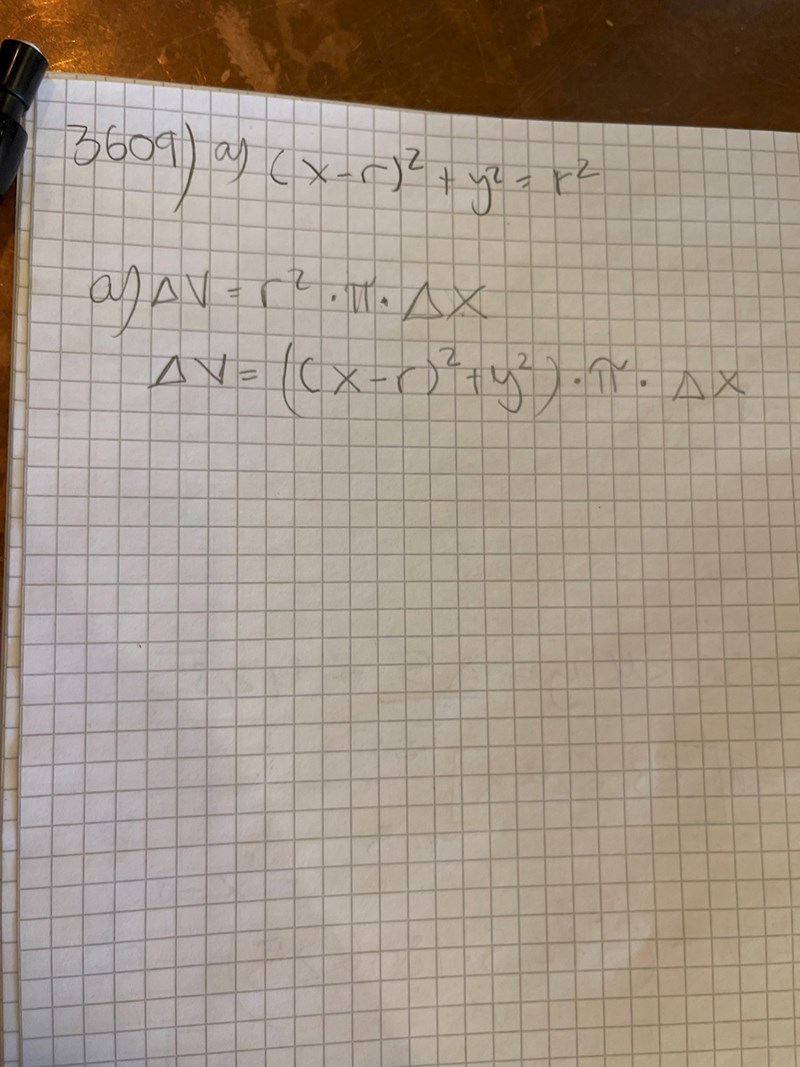 3609) a) (x-r)² + y² = r²
a) ΔV = r² · π · ΔX
ΔV = ((x-r)² + y²) · π · ΔX